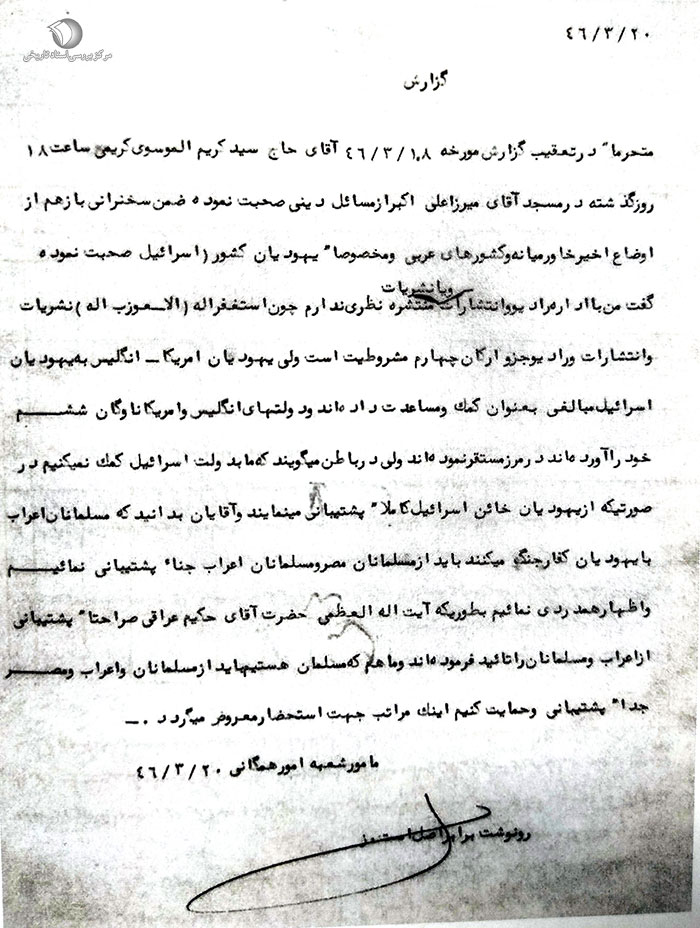 مرکز بررسی اسناد تاریخی
۴۶/۳/۲۰
گزارش
محترما" در تعقیب گزارش مورخه ۴۶/۳/۱۸ آقای حاج سید کریم الموسوی کریمی ساعت ۱۸
روز گذشته در مسجد آقای میرزاعلی اکبر از مسائل دینی صحبت نموده ضمن سخنرانی باز هم از
اوضاع اخیر خاورمیانه و کشورهای عربی ومخصوصا" یهودیان کشور (اسرائیل صحبت نموده
ویانشریات
گفت من با اداره رادیو وانتشارات منتشره نظری ندارم چون استغفراله (الاعوزب اله) نشریات
وانتشارات و رادیو جزو ارکان چهارم مشروطیت است ولی یهودیان امریکا - انگلیس به یهودیان
اسرائیل مبالغی بعنوان کمک ومساعدت داده اند ودولتهای انگلیس وامریکا ناوگان ششم
خود را آورده اند در مرز مستقر نموده اند ولی در باطن میگویند که ما بدولت اسرائیل کمک نمیکنیم در
صورتیکه از یهودیان خائن اسرائیل کاملا" پشتیبانی مینمایند وآقایان بدانید که مسلمانان اعراب
با یهودیان کفار جنگ میکنند باید از مسلمانان مصر ومسلمانان اعراب جداء پشتیبانی نمائیم
واظهار همدردی نمائیم بطوریکه آیت اله العظمی حضرت آقای حکیم عراقی صراحتا" پشتیبانی
از اعراب ومسلمانان را تائید فرموده اند وما هم که مسلمان هستیم باید از مسلمانان واعراب ومصر
جدا" پشتیبانی وحمایت کنیم اینک مراتب جهت استحضار معروض میگردد .-
مامور شعبه امور همگانی ۴۶/۳/۲۰
رونوشت برابر اصل است